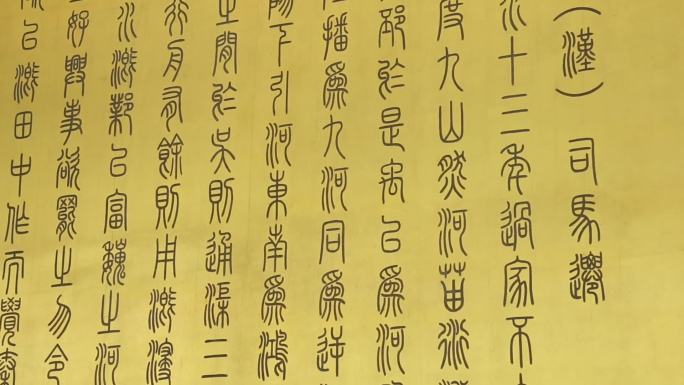 （漢）司馬遷
水十三年過家不
度九山然河菑衍溢
邳於是禹以爲河
播爲九河同爲逆
陽下引河東南爲鴻
之間於吳則通渠三
行舟有餘則用溉浸
水溉鄴以富魏之河
好興事欲罷之勿令
以溉田中作而覺秦